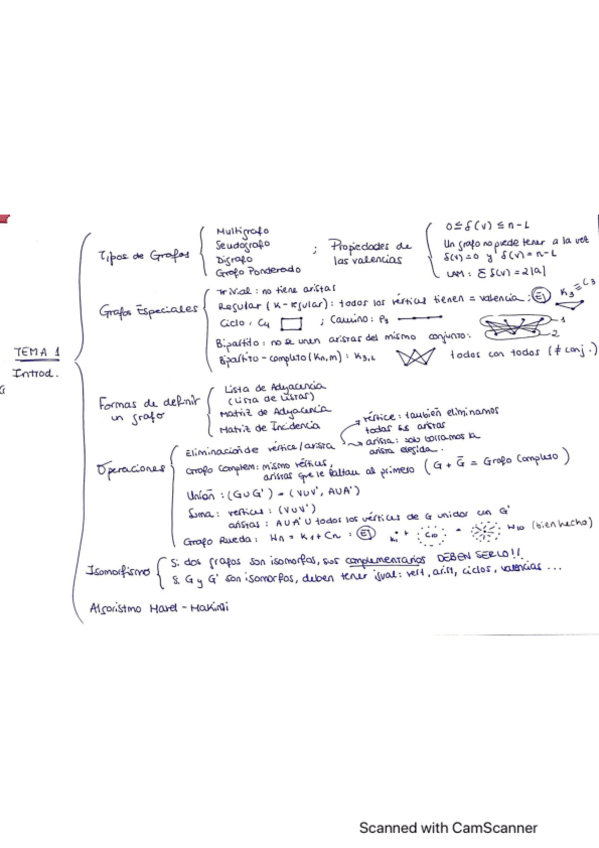 TEMA 1
Introd.
Tipos de Grafos
Multigrafo
Seudografo
Digrafo
Grafo Ponderado
; Propiedades de
las valencias
0 ≤ δ(v) ≤ n-1
Un grafo no puede tener a la vez
δ(v)=0 y δ(v)=n-1
LAM: Σ δ(v) = 2|A|
Grafos Especiales
Trivial: no tiene aristas
Regular (K-regular): todos los vérticas tienen = valencia; EJ K3 = C3
Ciclo: C4 ; Camino: P3
Bipartito: no se unen aristas del mismo conjunto: 1
2
Bipartito-completo (Kn,m): K3,2 todos con todos (≠ conj.)
Formas de definir
un grafo
Lista de Adyacencia
(Lista de Listas)
Matriz de Adyacencia
Matriz de Incidencia
Operaciones
Eliminación de vértice/arista
vértice: también eliminamos
todas las aristas
arista: solo borramos la
arista elegida.
Grafo Complem: mismo vérticus,
aristas que le faltan al primero (G + G̅ = Grafo Completo)
Unión: (G∪G') = (V∪V', A∪A')
Suma: vertices: (V∪V')
aristas: A∪A'∪ todos los vérticus de G unidor con G'
Grafo Rueda: Wn = K1 + Cn: EJ K1 + C10 = W10 (bien hecho)
Isomorfismo
Si dos grafos son isomorfos, sus complementarios DEBEN SERLO!!
Si G y G' son isomorfos, deben tener igual: vert, arist, ciclos, valencias ...
Algoristmo Havel - Hakimi
Scanned with CamScanner